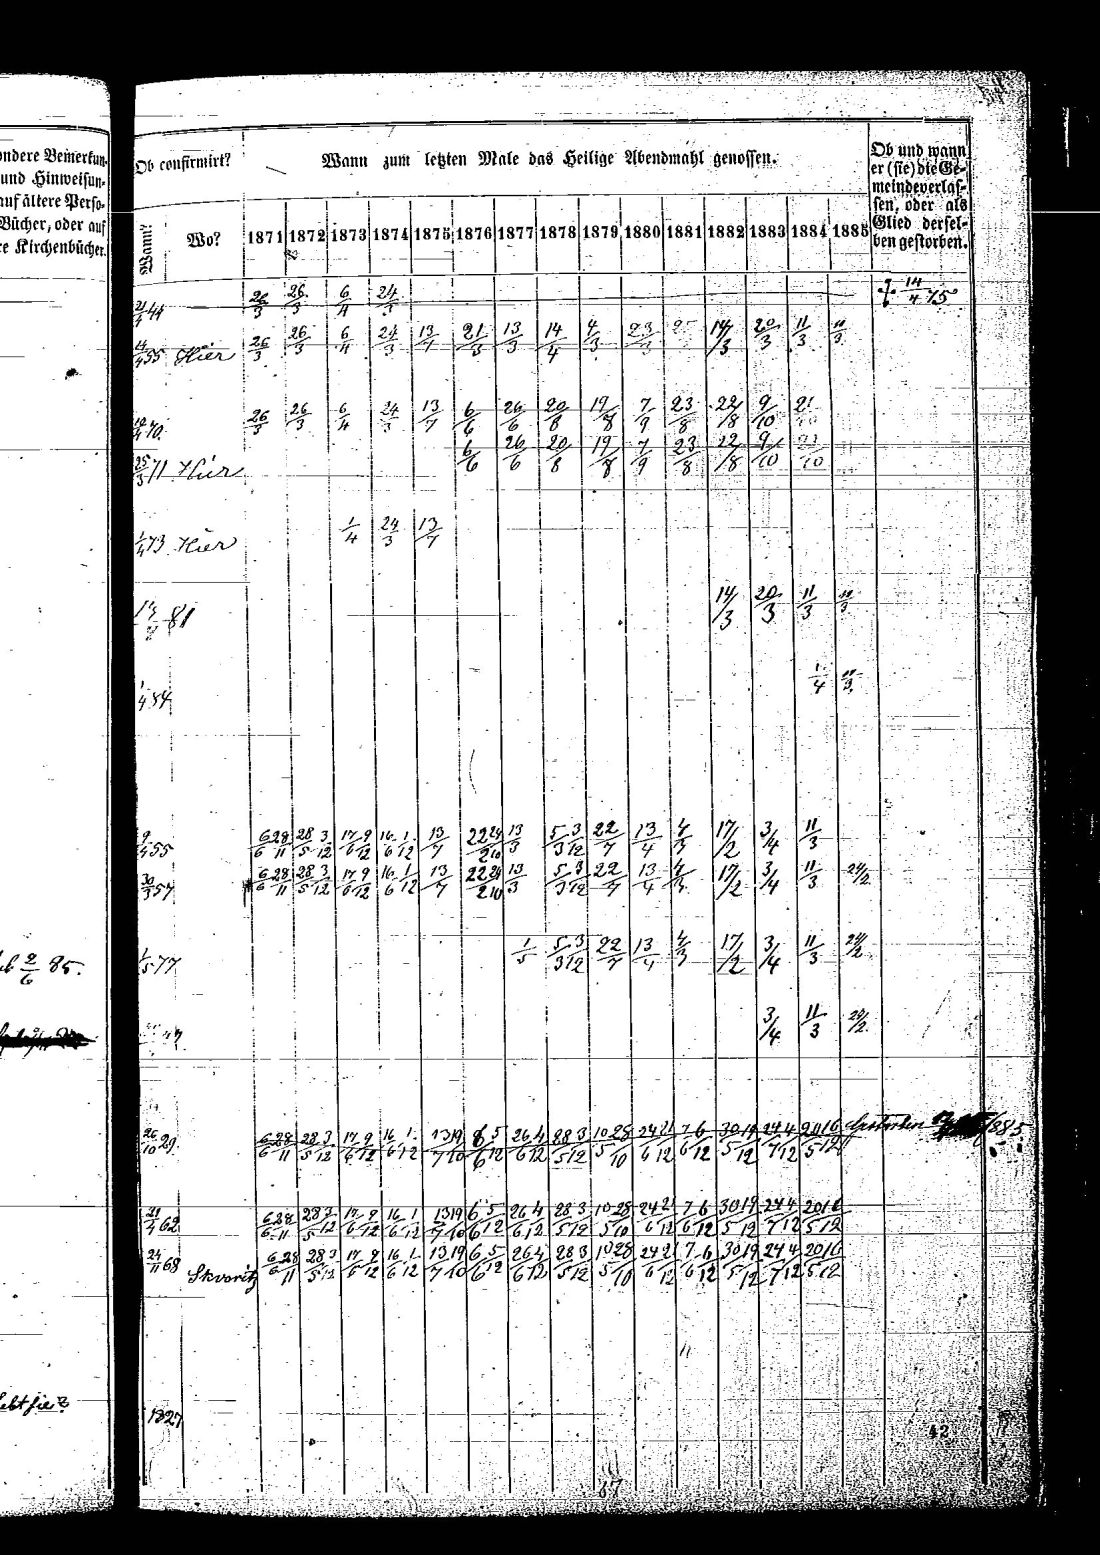 ondere Bemerkun-
und Hinweisun-
auf ältere Perso-
Bücher, oder auf
re Kirchenbücher.
Ob confirmirt?
Wann?
Wo?
Wann zum letzten Male das Heilige Abendmahl genossen.
1871 1872 1873 1874 1875 1876 1877 1878 1879 1880 1881 1882 1883 1884 1885
Ob und wann
er (sie) die Ge-
meinde verlas-
sen, oder als
Glied dersel-
ben gestorben.
21/4 44 26/3 26/3 6/4 24/3 † 14/4 75
14/4 55 Hier 26/3 26/3 6/4 24/3 13/7 21/3 13/3 14/4 4/3 23/3 14/3 20/3 11/3 10/3
70 26/3 26/3 6/4 24/3 13/7 6/6 26/6 20/8 19/8 7/9 23/8 22/8 9/10 21
25/3 71 Hier 6/6 26/6 20/8 19/8 7/9 23/8 22/8 9/10 23/10
1/4 73 Hier 1/4 24/3 13/7
81 14/3 20/3 11/3 10/3
1/4 84 1/4 10/3
9/4 55 6/6 28/11 28/5 3/12 17/6 9/12 16/6 1/12 13/7 22/2 24/10 13/3 5/3 3/12 22/7 13/4 4/3 17/2 3/4 11/3
30/3 57 6/6 28/11 28/5 3/12 17/6 9/12 16/6 1/12 13/7 22/2 24/10 13/3 5/3 3/12 22/7 13/4 4/3 17/2 3/4 11/3 24/2
2/6 85. 1/5 77 1/5 5/3 3/12 22/7 13/4 4/3 17/2 3/4 11/3 24/2
47 3/4 11/3 24/2
26/10 29 6/6 28/11 28/5 3/12 17/6 9/12 16/6 1/12 13/7 19/10 6/6 5/12 26/6 4/12 28/5 3/12 10/5 28/10 24/6 21/12 7/6 6/12 30/5 19/12 24/7 4/12 20/5 16/12 Gestorben 1885
21/4 62 6/6 28/11 28/5 3/12 17/6 9/12 16/6 1/12 13/7 19/10 6/6 5/12 26/6 4/12 28/5 3/12 10/5 28/10 24/6 21/12 7/6 6/12 30/5 19/12 24/7 4/12 20/5 16/12
24/11 68 Skvoritz 6/6 28/11 28/5 3/12 17/6 9/12 16/6 1/12 13/7 19/10 6/6 5/12 26/6 4/12 28/5 3/12 10/5 28/10 24/6 21/12 7/6 6/12 30/5 19/12 24/7 4/12 20/5 16/12
lebt sie?
1827
42
87